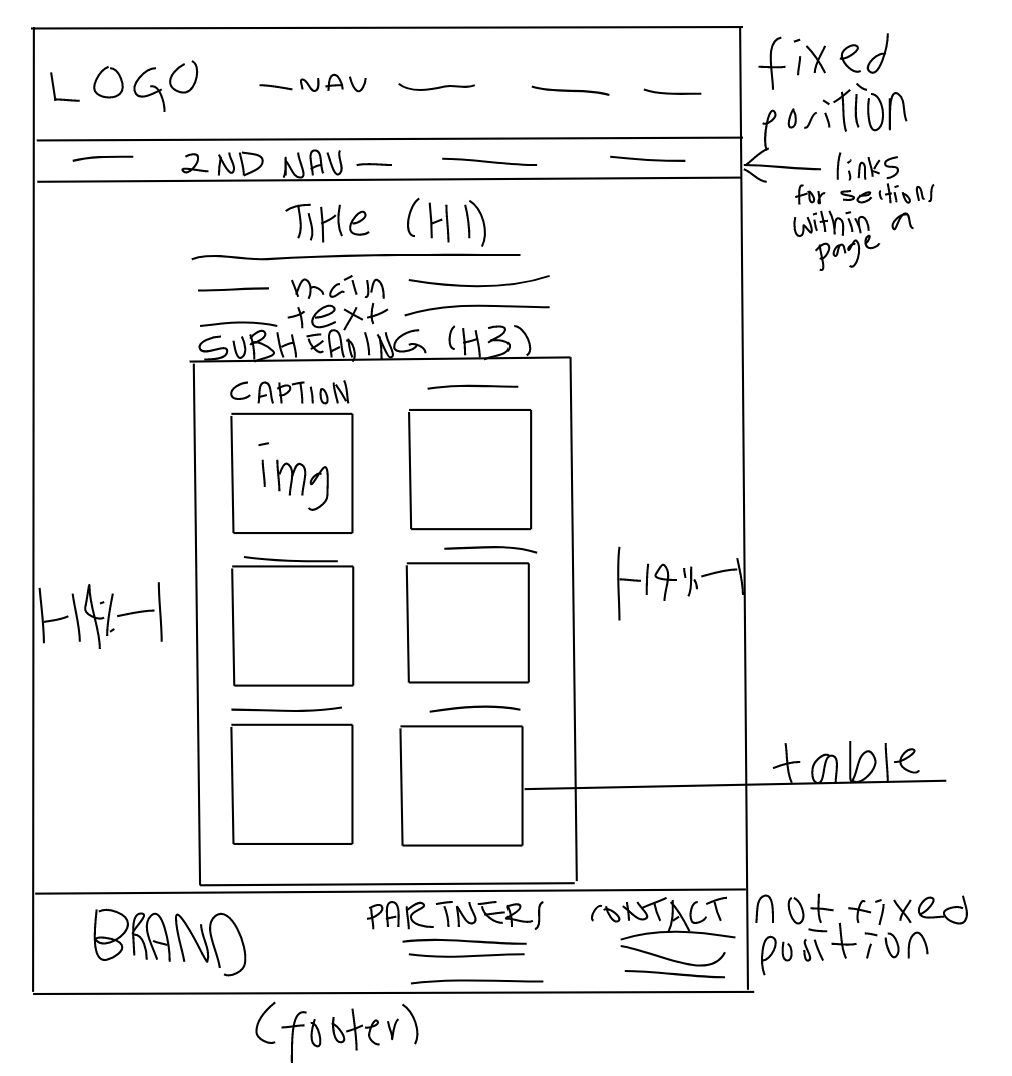 LOGO NAV
fixed
position
2ND NAV
links
for sections
within a
page
Title (H1)
main
text
SUBHEADING (H3)
CAPTION
img
14%
14%
table
BRAND
PARTNERS
CONTACT
not fixed
position
(footer)